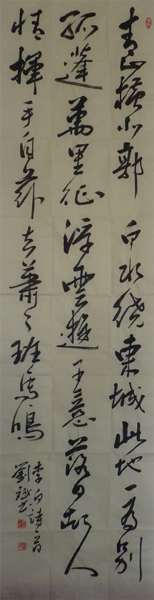 青山横北郭白水绕東城此地一為别
孤蓬萬里征浮雲遊子意落日故人
情揮手自兹去蕭々班馬鳴
李白詩一首
劉